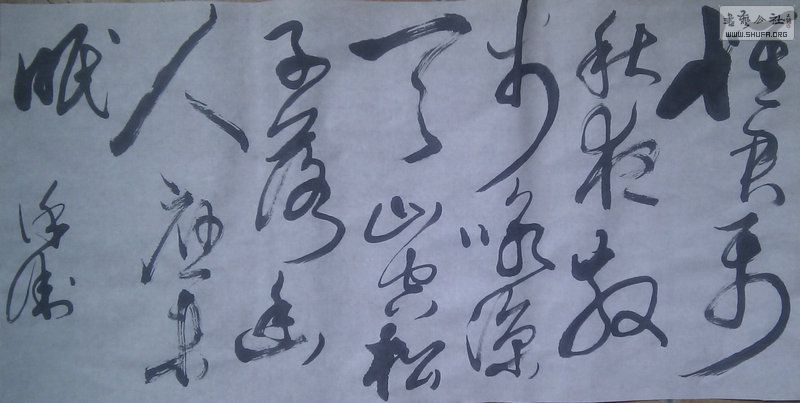 怀君属
秋夜散
步咏凉
天山空松
子落幽
人应未
眠
书艺公社
WWW.SHUFA.ORG